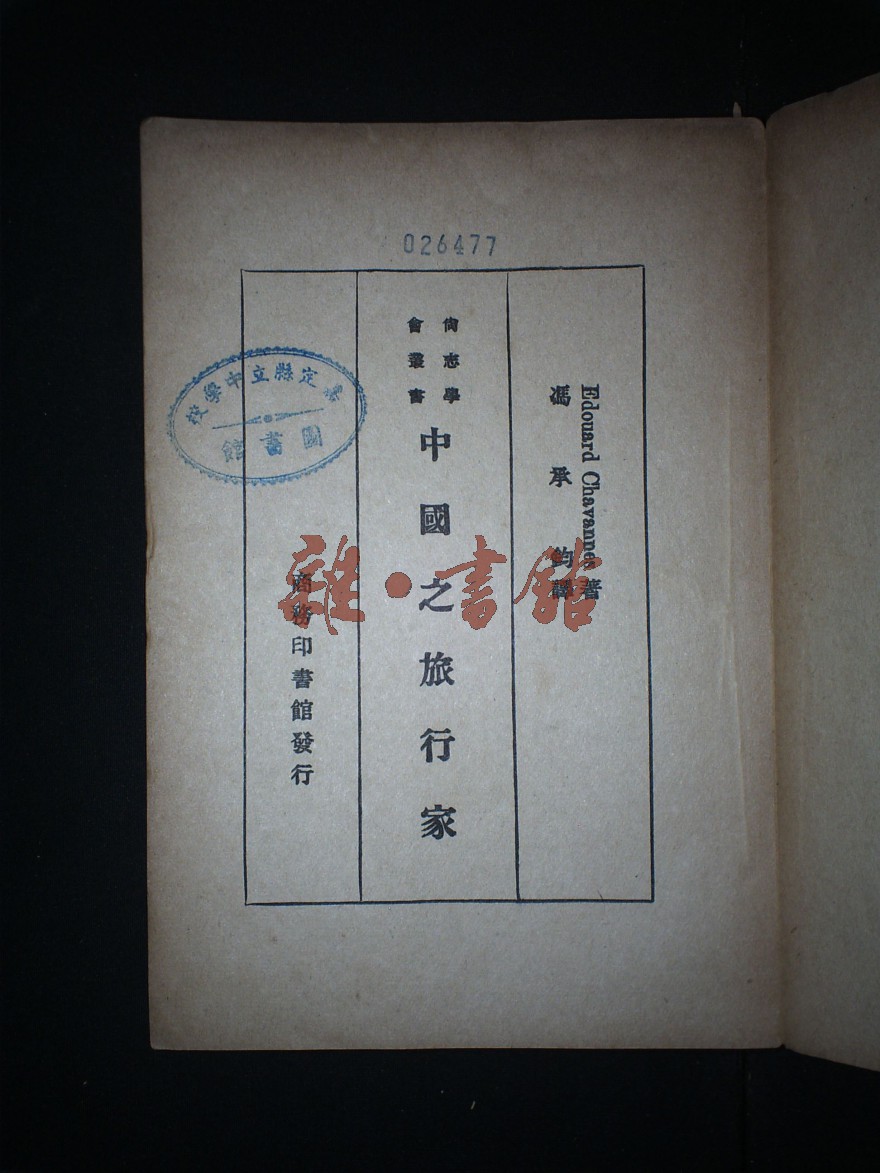 026477
Edouard Chavannes 著
馮承鈞譯
尙志學
會叢書
中國之旅行家
商務印書館發行
定縣立中學校
圖書館
雜·書館